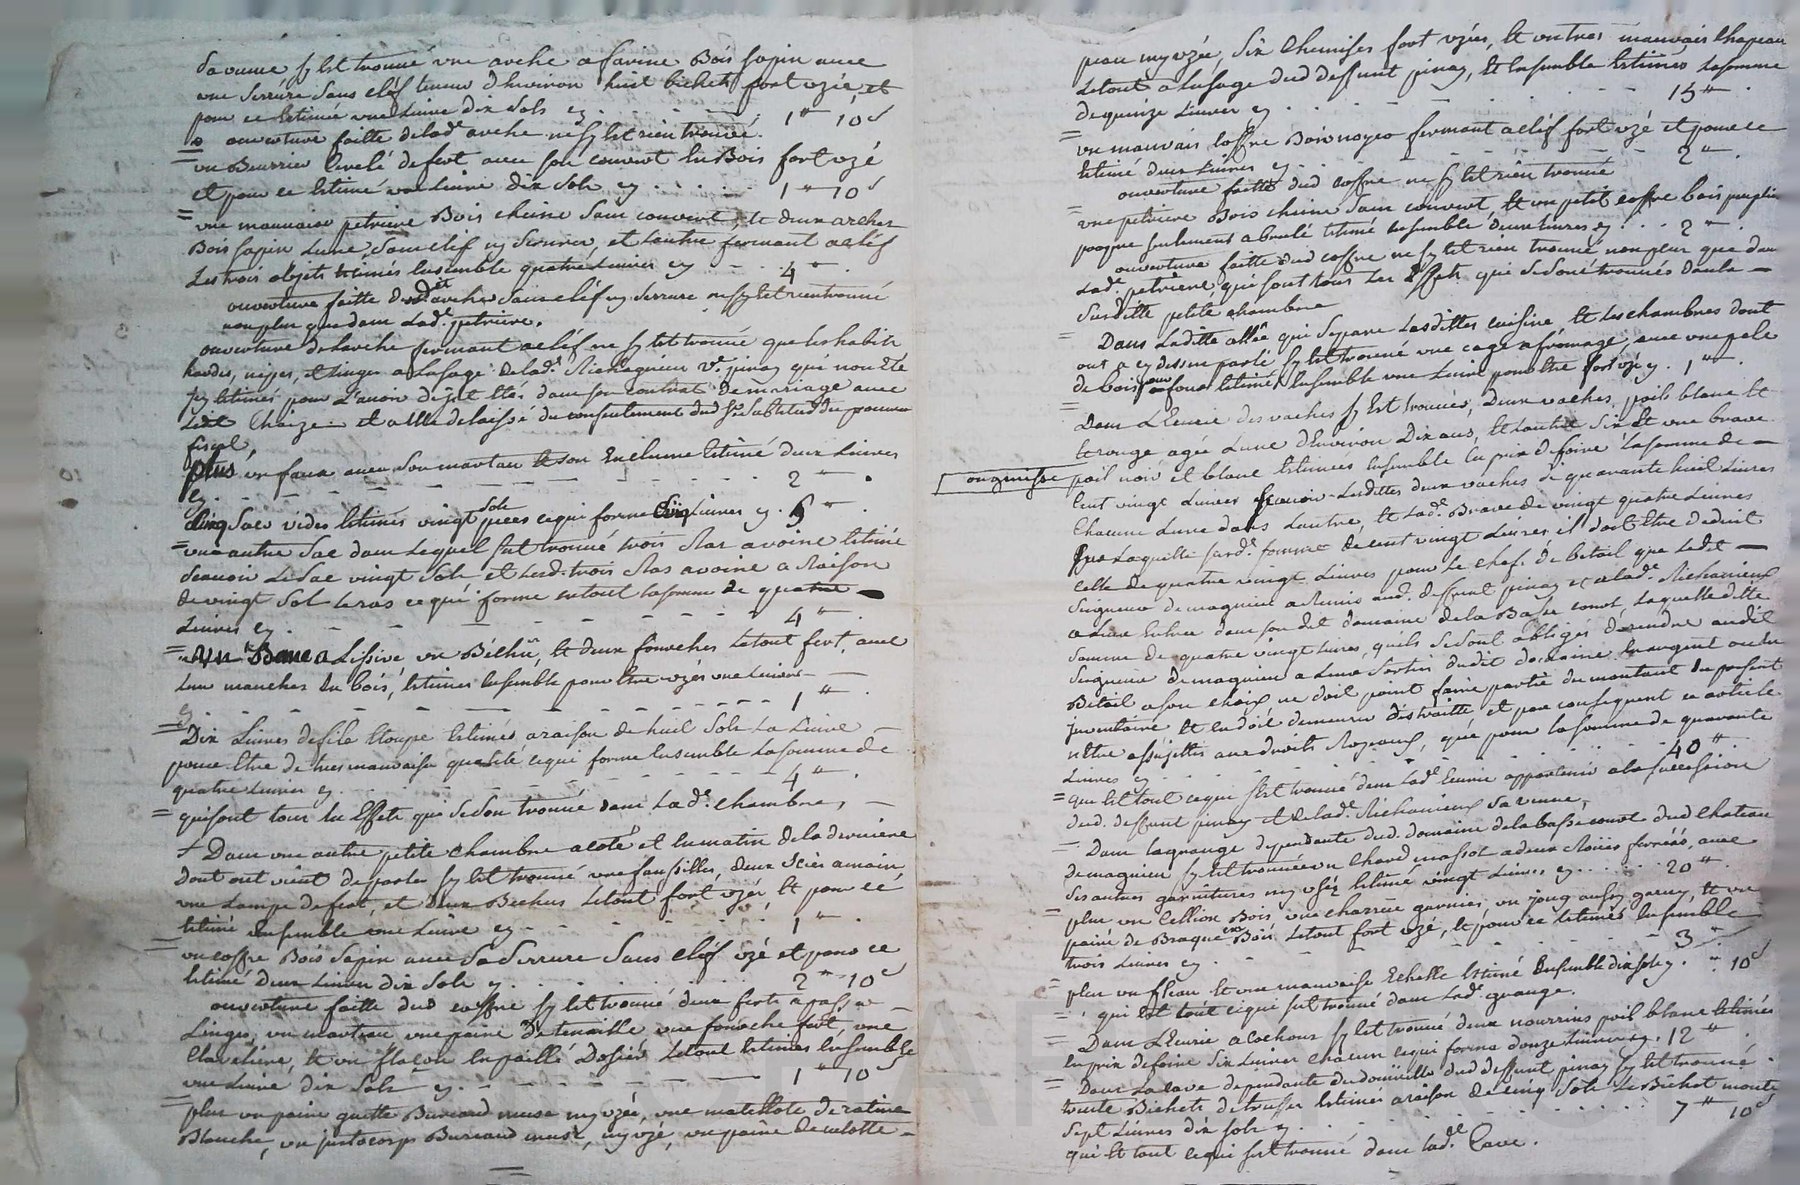 sa veuve sy est trouvé une arche a farine Bois sapin avec
une serrure sans cléf tenant d'huiron huit bichets fort uzée, et
pour ce Estimée une Livre dix sols cy 1" 10s
ouverture faitte de lad.e arche ne sy est rien trouvé.
un Beurrier Cerclé de fert avec son couvert en Bois fort uzé
et pour ce Estimé une Livre dix sols cy 1" 10s
= une mauvaise petriere Bois chêne sans couvert, et deux arches
Bois sapin Lune sans cléf ny serrure, et Lautre fermant a cléf
Les trois objets Estimés Ensemble quatre Livres cy 4"
ouverture faitte de lad.e arche sans cléf ny serrure ne sy est rien trouvé
non plus que dans Lad.e petriere.
ouverture de Larche fermant a cléf ne sy est trouvé que les habits
hardes, nipes, et Linges a Lusage de lad.e v.e pinay qui nont Eté
py Estimés pour L'avoir déja Etés dans son contrat de mariage avec
Led. et a Elle delaissé du consentement dud. s.r Substitud du procureur
fiscal
plus un faux avec son marteau et son Enclume Estimé deux Livres
cy. 2"
Cinq Sacs vides Estimés vingt sols pieces ce qui forme Cinq Livres cy. 5"
= un autre Sac dans Lequel sest trouvé trois Ras avoine Estimé
scavoir Le Sac vingt sols et Lesd. trois Ras avoine a Raison
de vingt sols le ras ce qui forme en tout La somme de quatre
Livres cy. 4"
= un Banc a Lissive un Béchu, et deux fourches Le tout fert, avec
Leur manches En bois, Estimés Ensemble pour Etre uzés une Livre
cy 1"
= Dix Livres de file Etoupe Estimés a raison de huit sols La Livre
pour Etre de tres mauvaise qualité ce qui forme Ensemble La somme de
quatre Livres cy. 4"
= qui sont tous les Effets qui se sont trouvé dans Lad.e chambre,
+ Dans une autre petite chambre a coté et Enmatin de la derniére
Dont ont vient de parler sy est trouvé une faussilles, deux scies a main
une Lampe de fert, et deux Bechus Le tout fort uzés, et pour cé
Estimé Ensemble une Livre cy 1"
= un coffre Bois Sapin avec Sa Serrure Sans cléf uzé et pour ce
Estimé deux Livres dix sols cy 2" 10s
ouverture faitte dud coffre sy est trouvé deux ferts a passer
Linges, un marteau une paire de tenaille une fourche fert, une
et un flacon En paille Le tout Estimés Ensemble
une Livre dix sols cy. 1" 10s
= plus un paire guette Bureaud my uzée, une matelotte de ratine
Blanche, un justocorps Bureaud my uzé, un paire de culotte
=
peau my uzée, Six Chemises fort uzées, et un tres mauvais Chapeau
Le tout a Lusage dud deffunt pinay, Et Ensemble Estimés La somme
de quinze Livres cy 15"
= un mauvais Coffre Bois noyer fermant a cléf fort uzé et pour ce
Estimé deux Livres cy 2"
ouverture faitte dud coffre ne sy est rien trouvé
= une petriere Bois chêne sans couvert, et un petit coffre bois peuplier
presque seulement a brulé Estimé Ensemble deux Livres cy 2"
ouverture faitte dud coffre ne sy est rien trouvé non plus que dans
Lad.e petriere qui sont tous Les Effets qui se sont trouvés dans la
Susditte petite chambre
= Dans Laditte allée qui Separe Lesdittes cuisine, et Les chambres dont
ont a cy dessus parlé sy est trouvé une cage a fromage, avec une pele
de bois pour four Estimés Ensemble une Livre pour Etre fort uzé cy. 1"
= Dans L'Ecurie des vaches sy Est trouvées, Deux vaches poils blanc et
et rouge agée Lune d'Environ Dix ans, et Lautre Six et une brave
ou genisse
poil noir et blanc Estimées Ensemble En prix de foire La somme de
Cent vingt Livres scavoir Lesdittes deux vaches de quarante huit Livres
chacune Lune dans Lautre, et Lad.e Brave de vingt quatre Livres
sur Laquelle susd.e somme de cent vingt Livres il doit Etre deduit
celle de quatre vingt Livres pour Le chef. de betail que Ledit
Seigneur de magnieu a Remis aud. deffunt pinay et a lad.e
a Leur Entrée dans son dit domaine de la Basse court, Laquelle ditte
Somme de quatre vingt Livres, quils se sont obligés de rendre audit
Seigneur de magnieu a Leur Sortie dudit domaine En argent ou En
Betail a son choix ne doit point faire partie du montant du present
jnventaire et En doit demeurer distraitte et par consequent ce article
n'Etre assujetties aux droits Royaux, que pour la somme de quarante
Livres cy 40"
= qui Est tout ce qui sEst trouvé dans Lad.e Ecurie appartenir a la succession
dud. deffunt pinay et de lad.e sa veuve,
= Dans La grange dependante dud. domaine de la basse court dud chateau
de magnieu sy est trouvée un Chard massot a deux Roües ferréés, avec
Ses autres garnitures my uséz Estimé vingt Livres cy 20"
= plus un Bois, une charrüe garnie, un joug aussy garny, et une
paire de Braque en Bois Le tout fort uzé, et pour ce Estimés Ensemble
trois Livres cy 3"
= plus un fleau et une mauvaise Echelle Estimé Ensemble dix sols cy. " 10s
= qui Est tout ce qui sest trouvé dans Lad.e grange.
= Dans LEcurie a cochons sy est trouvé deux nourrins poil blanc Estimés
En prix de foire Six Livres chacun ce qui forme douze Livres cy. 12"
= Dans La cave dependante du domicille dud deffunt pinay sy est trouvé
trente Bichets de Estimés a raison de cinq sols Le Bichet monte
Sept Livres dix sols cy 7" 10s
qui est tout ce qui sest trouvé dans Lad.e Cave.